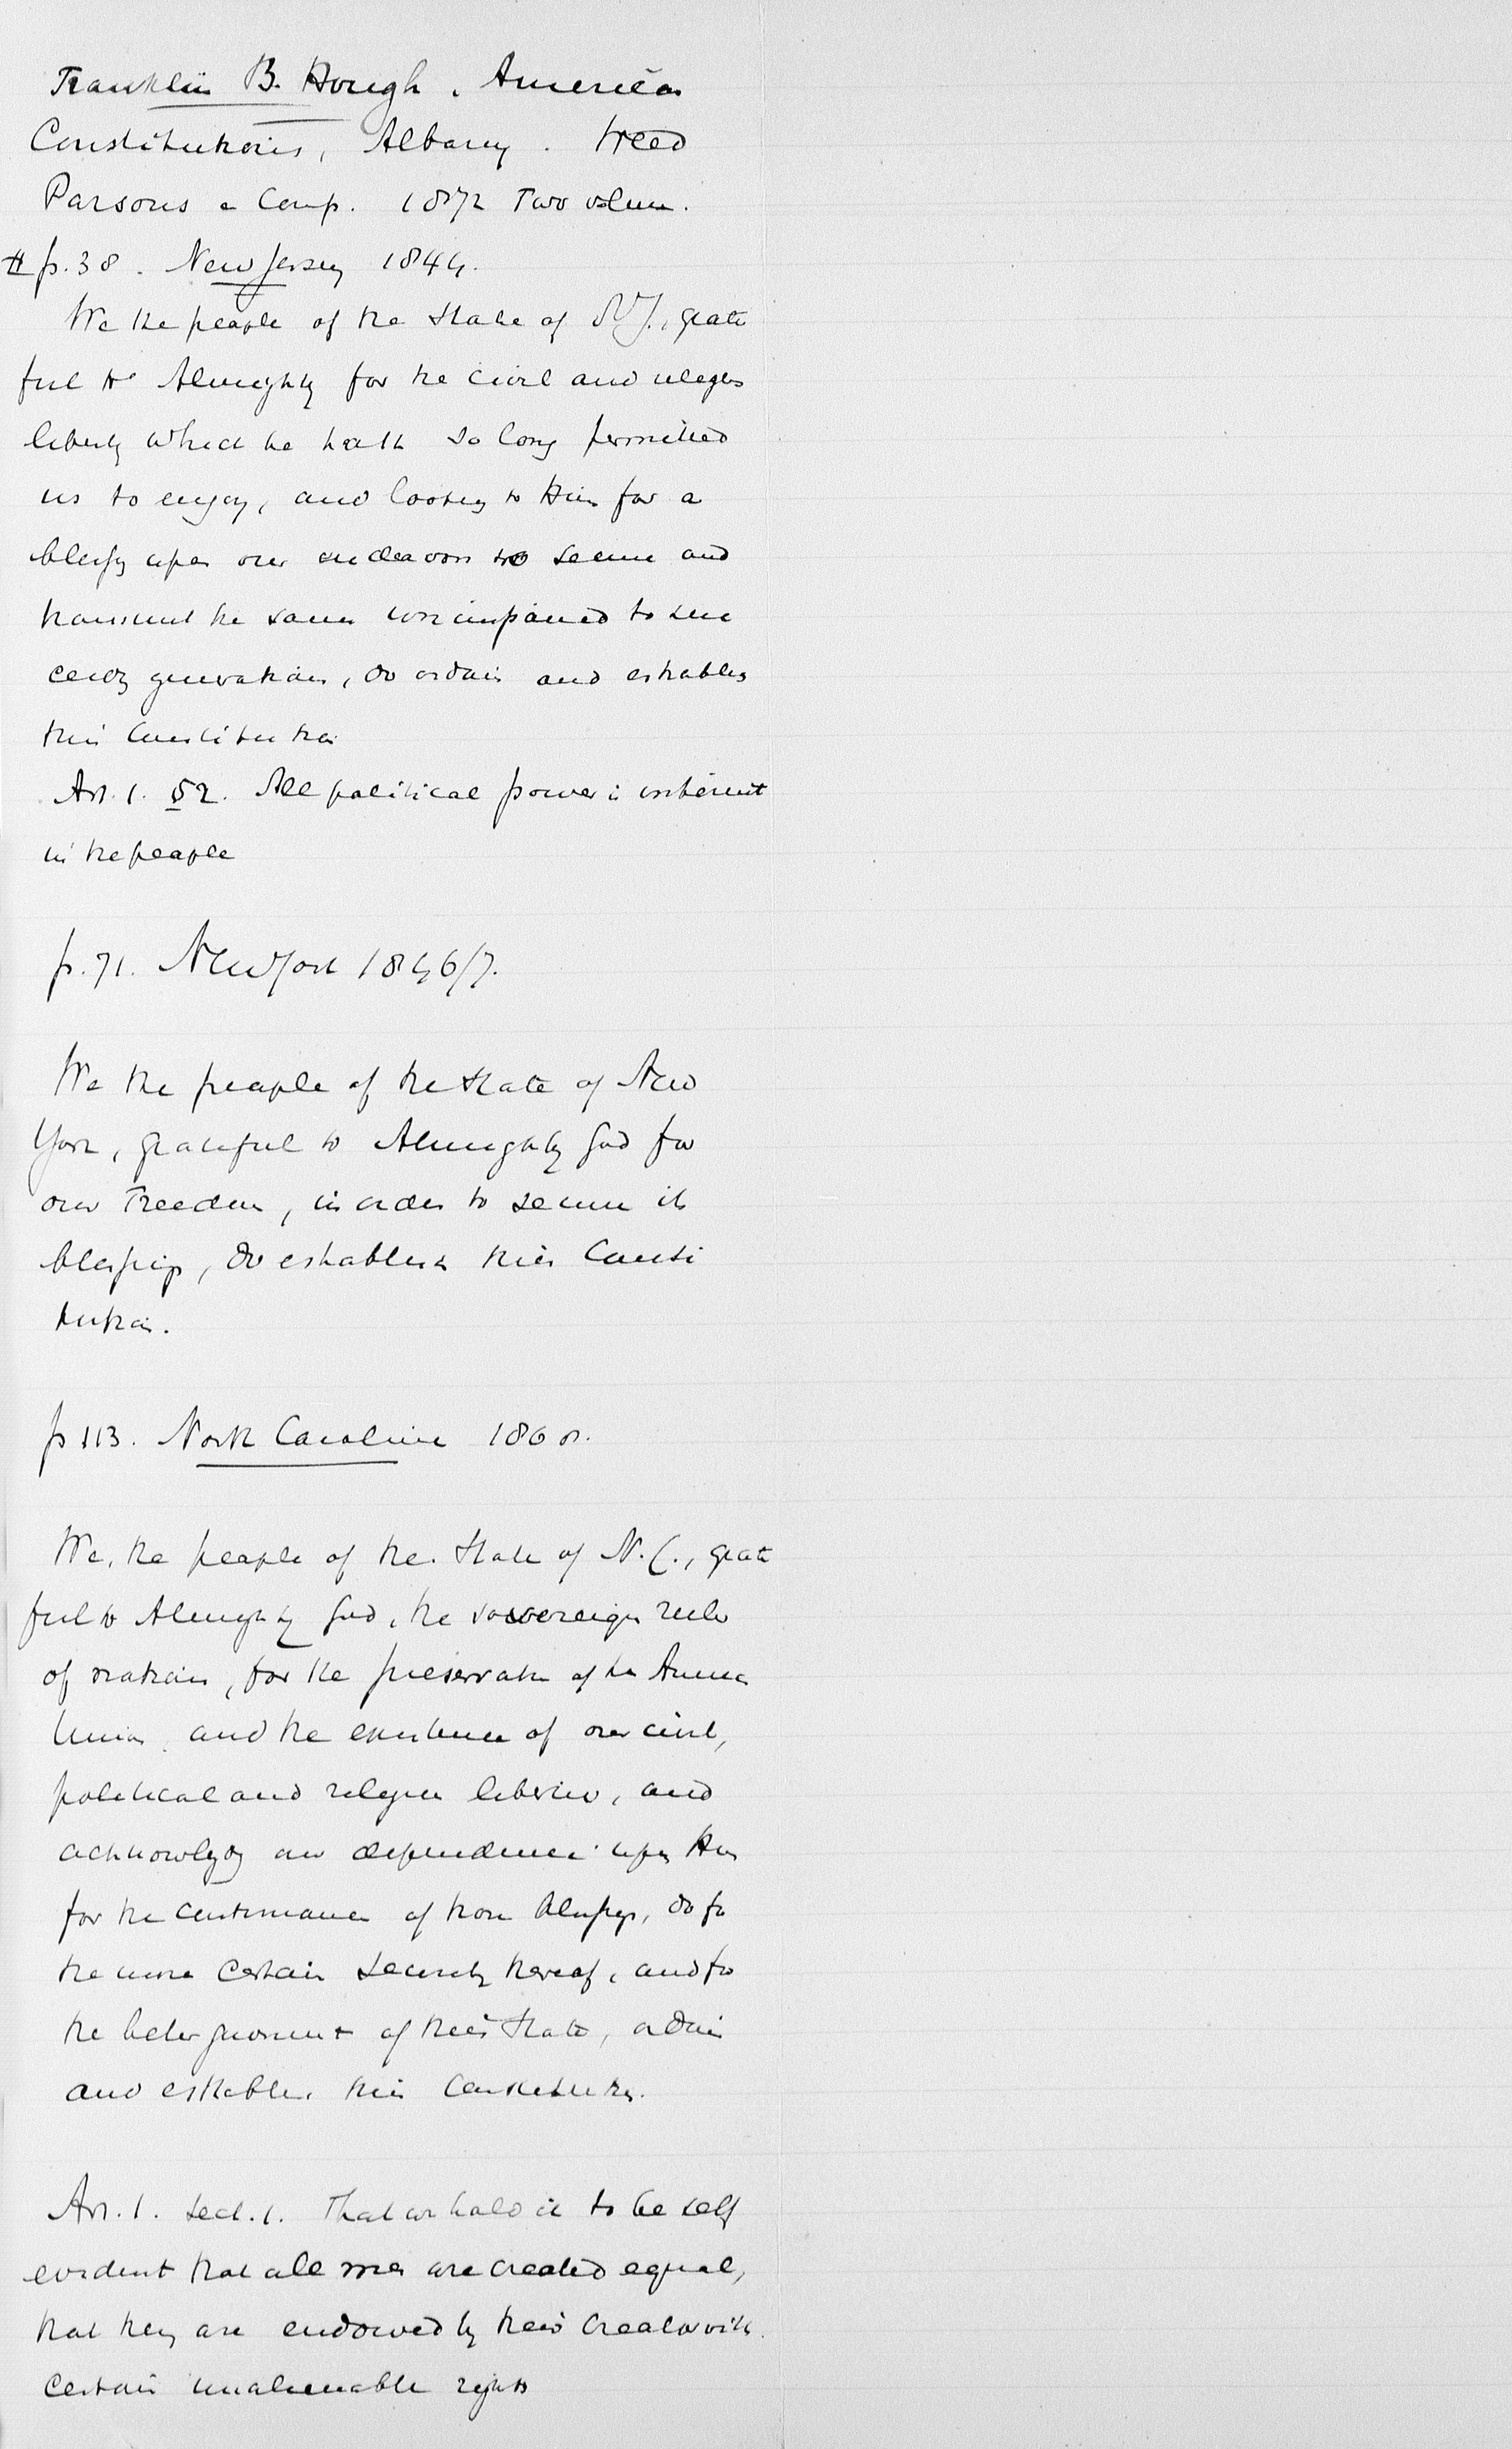 Franklin B. Hough. American
Constitutions, Albany. Weed
Parsons & Comp. 1872 Two volum.
# p. 38. New Jersey 1844.
We the people of the State of N.J., grate
ful to Almighty for the civil and religious
liberty which he hath so long permitted
us to enjoy, and looking to Him for a
blessing upon our endeavors to secure and
transmit the same unimpaired to suc
ceeding generations, do ordain and establish
this Constitution
Art. 1. § 2. All political power is inherent
in the people
p. 71. New York 1846/7.
We the people of the State of New
York, grateful to Almighty God for
our Freedom, in order to secure its
blessings, do establish this Consti
tution.
p 113. North Carolina 1868.
We, the people of the State of N. C., grate
ful to Almighty God, the sovereign ruler
of nations, for the preservation of the American
Union and the existence of our civil,
political and religious liberties, and
acknowledging our dependence upon Him
for the continuance of those blessings, do for
the more certain security thereof, and for
the better government of this State, ordain
and establish this Constitution.
Art. 1. Sect. 1. That we hold it to be self
evident that all men are created equal,
that they are endowed by their Creator with
certain unalienable rights